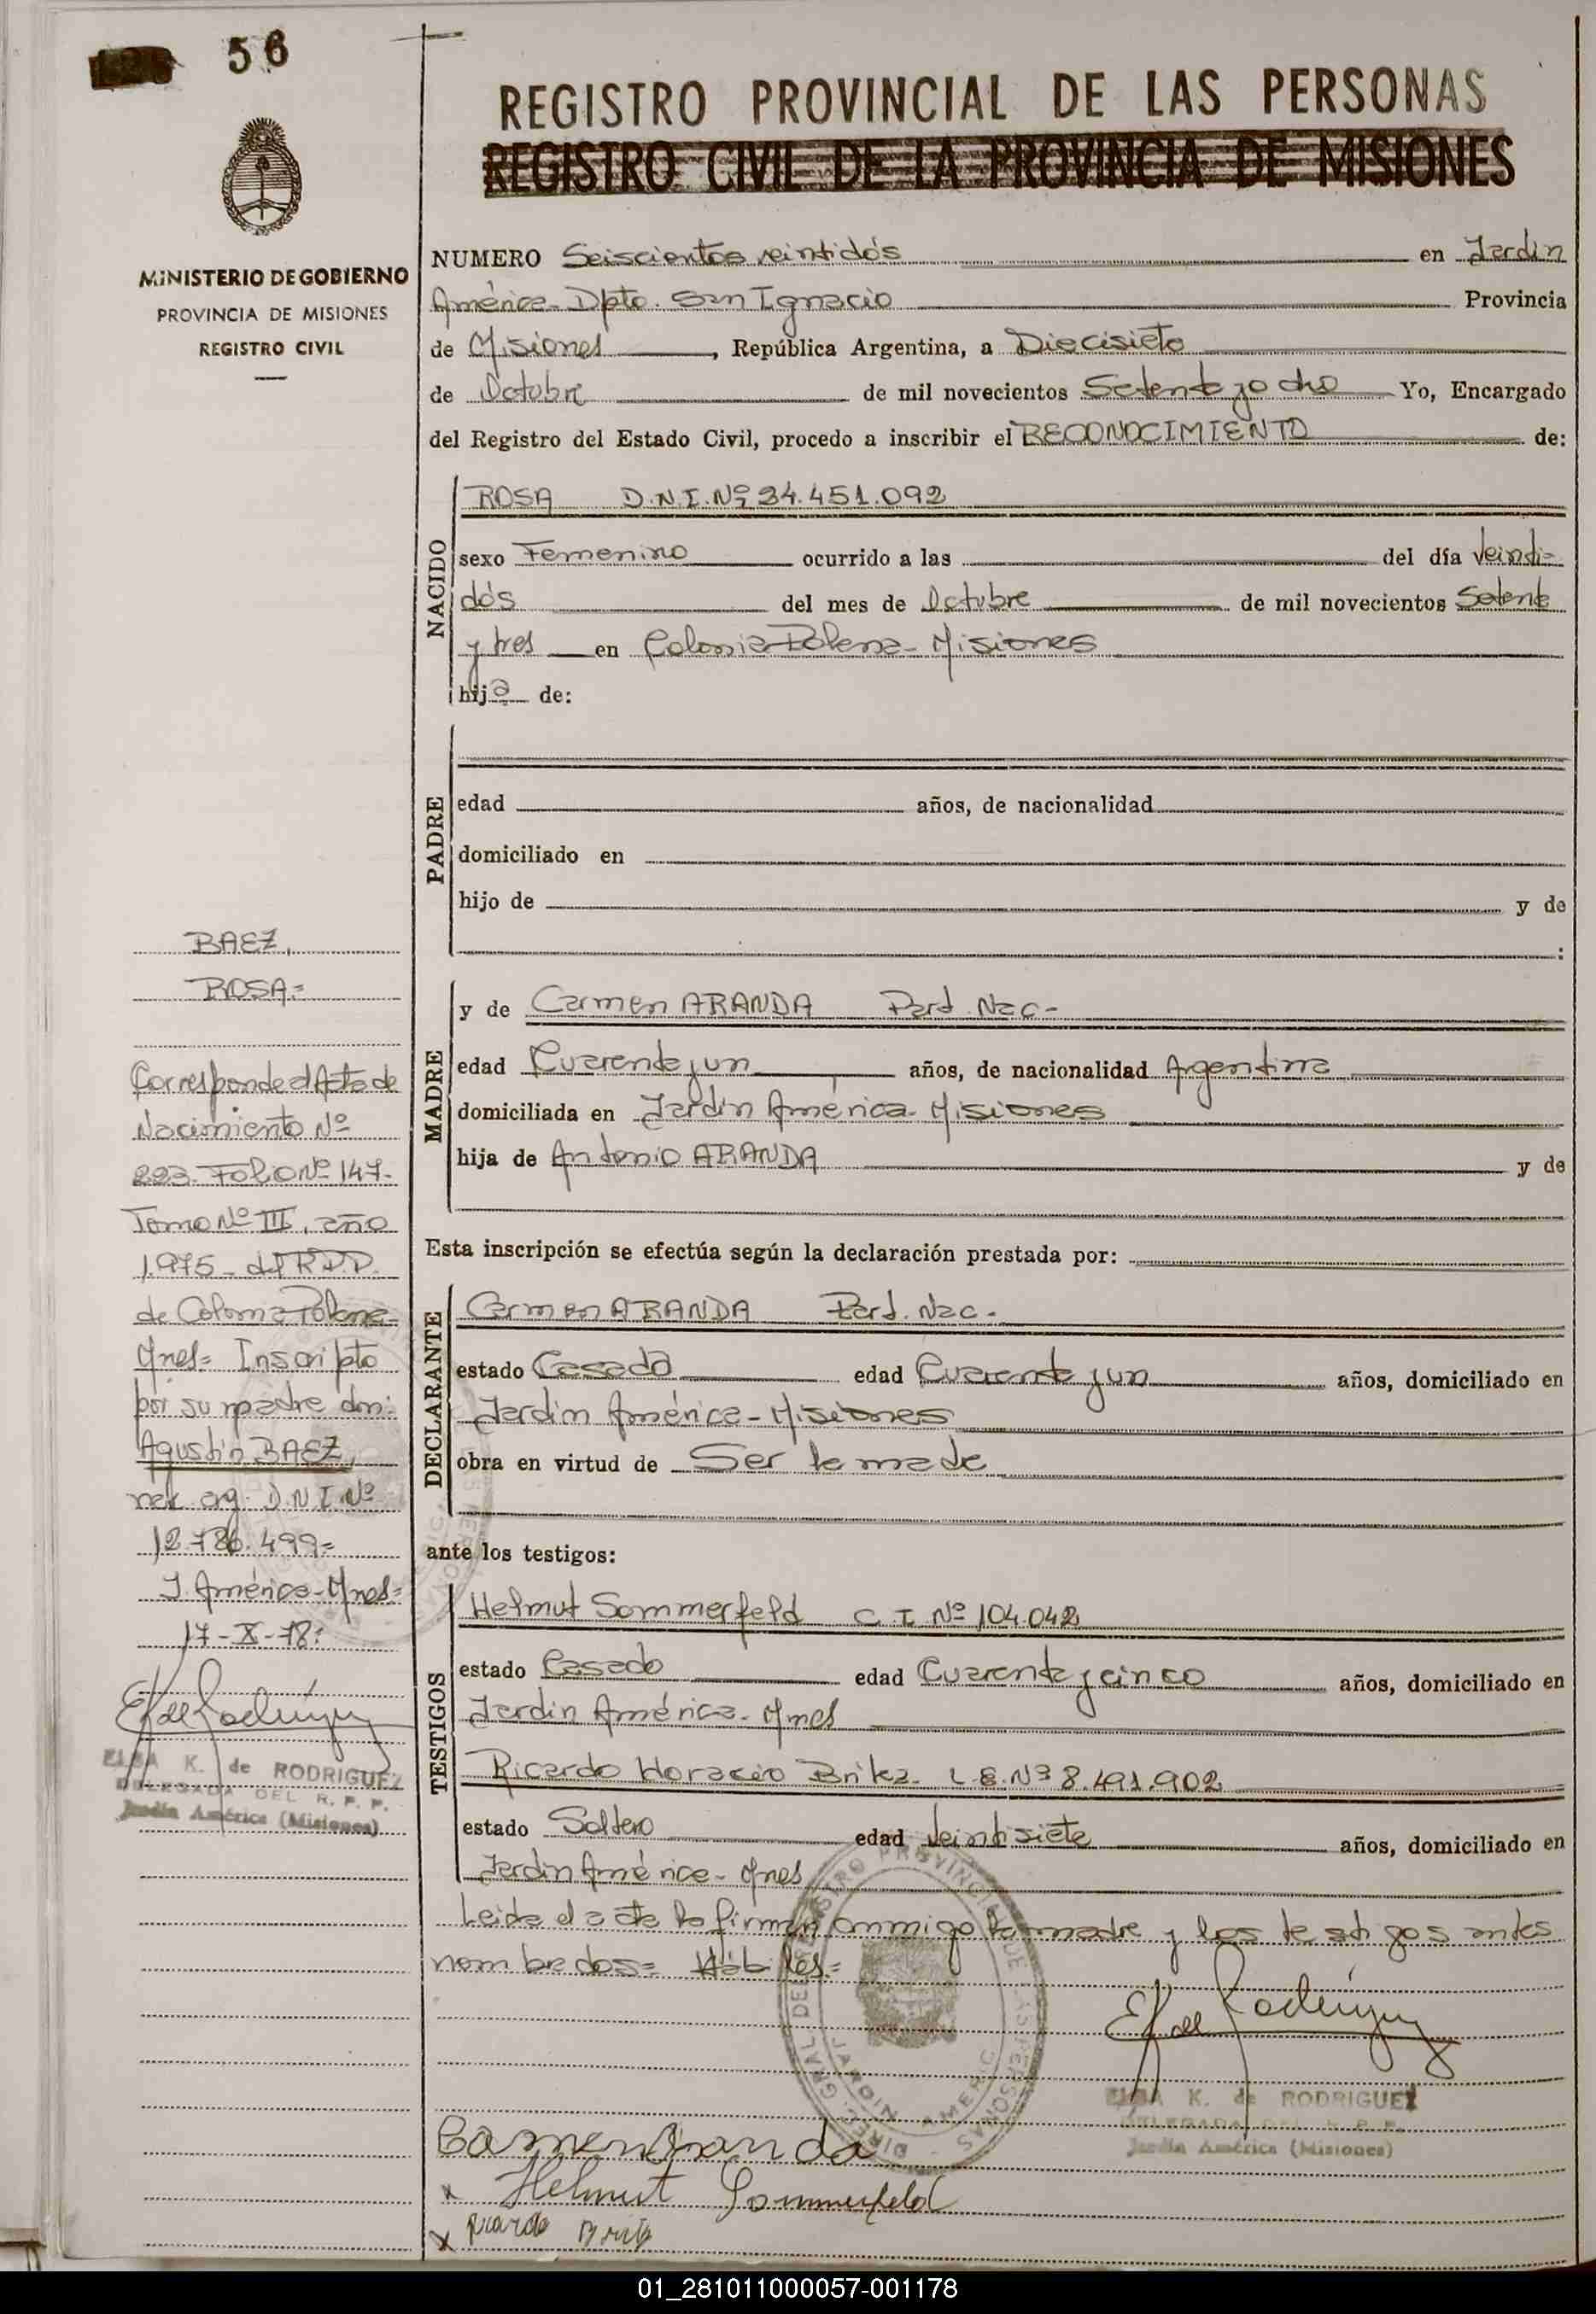 56
REGISTRO PROVINCIAL DE LAS PERSONAS
REGISTRO CIVIL DE LA PROVINCIA DE MISIONES
MINISTERIO DE GOBIERNO
PROVINCIA DE MISIONES
REGISTRO CIVIL
NUMERO Seiscientos veintidós en Jardin
América - Dpto. San Ignacio Provincia
de Misiones, República Argentina, a Diecisiete
de Octubre de mil novecientos Setenta y ocho Yo, Encargado
del Registro del Estado Civil, procedo a inscribir el RECONOCIMIENTO de:
NACIDO
ROSA D.N.I. Nº 24.451.092
sexo Femenino ocurrido a las del día veinti=
dós del mes de Octubre de mil novecientos Setenta
y tres en Colonia Polana - Misiones
hija de:
PADRE
edad años, de nacionalidad
domiciliado en
hijo de y de
:
MADRE
y de Carmen ARANDA Pard. Nac -
edad Cuarenta y un años, de nacionalidad Argentina
domiciliada en Jardin América - Misiones
hija de Antonio ARANDA y de
Esta inscripción se efectúa según la declaración prestada por:
DECLARANTE
Carmen ARANDA Pard. Nac -
estado Casada edad Cuarenta y un años, domiciliado en
Jardin América - Misiones
obra en virtud de Ser la madre
ante los testigos:
TESTIGOS
Helmut Sommerfeld C I Nº 104.042
estado Casado edad Cuarenta y cinco años, domiciliado en
Jardin América - Mnes
Ricardo Horacio Britez - L.E. Nº 8.491.902
estado Soltero edad veintisiete años, domiciliado en
Jardin América - Mnes
Leida el acta la firman conmigo la madre y los testigos antes
nombrados = Hábiles =
BAEZ,
ROSA =
Corresponde al Acta de
Nacimiento Nº
223 - Folio Nº 147 -
Tomo Nº III, año
1.975 - del R.P.P.
de Colonia Polana -
Mnes = Inscripto
por su padre don:
Agustín BAEZ,
nac. arg. D.N.I. Nº
12.786.499 =
J. América - Mnes =
17 - X - 78:
ELBA K. de RODRIGUEZ
DELEGADA DEL R. P. P.
Jardín América (Misiones)
ELBA K. de RODRIGUEZ
DELEGADA DEL R. P. P.
Jardín América (Misiones)
Carmen Aranda
x Helmut Sommerfeld
x
01_281011000057-001178